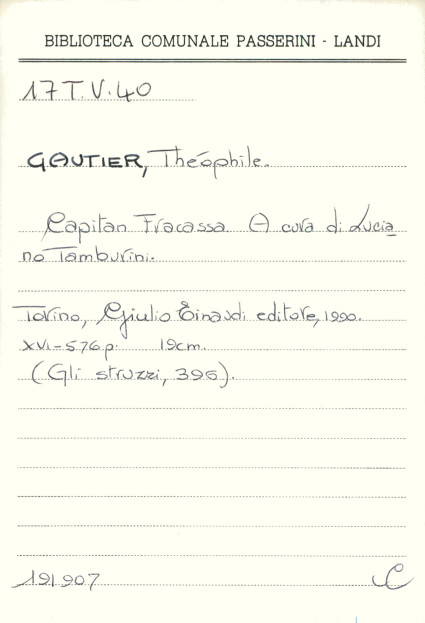 BIBLIOTECA COMUNALE PASSERINI - LANDI
17 T.V.40
GAUTIER, Théophile.
Capitan Fracassa. A cura di Lucia
no Tamburini.
Torino, Giulio Einaudi editore, 1990.
XVI-576 p. 19cm.
(Gli struzzi, 396).
191907 C